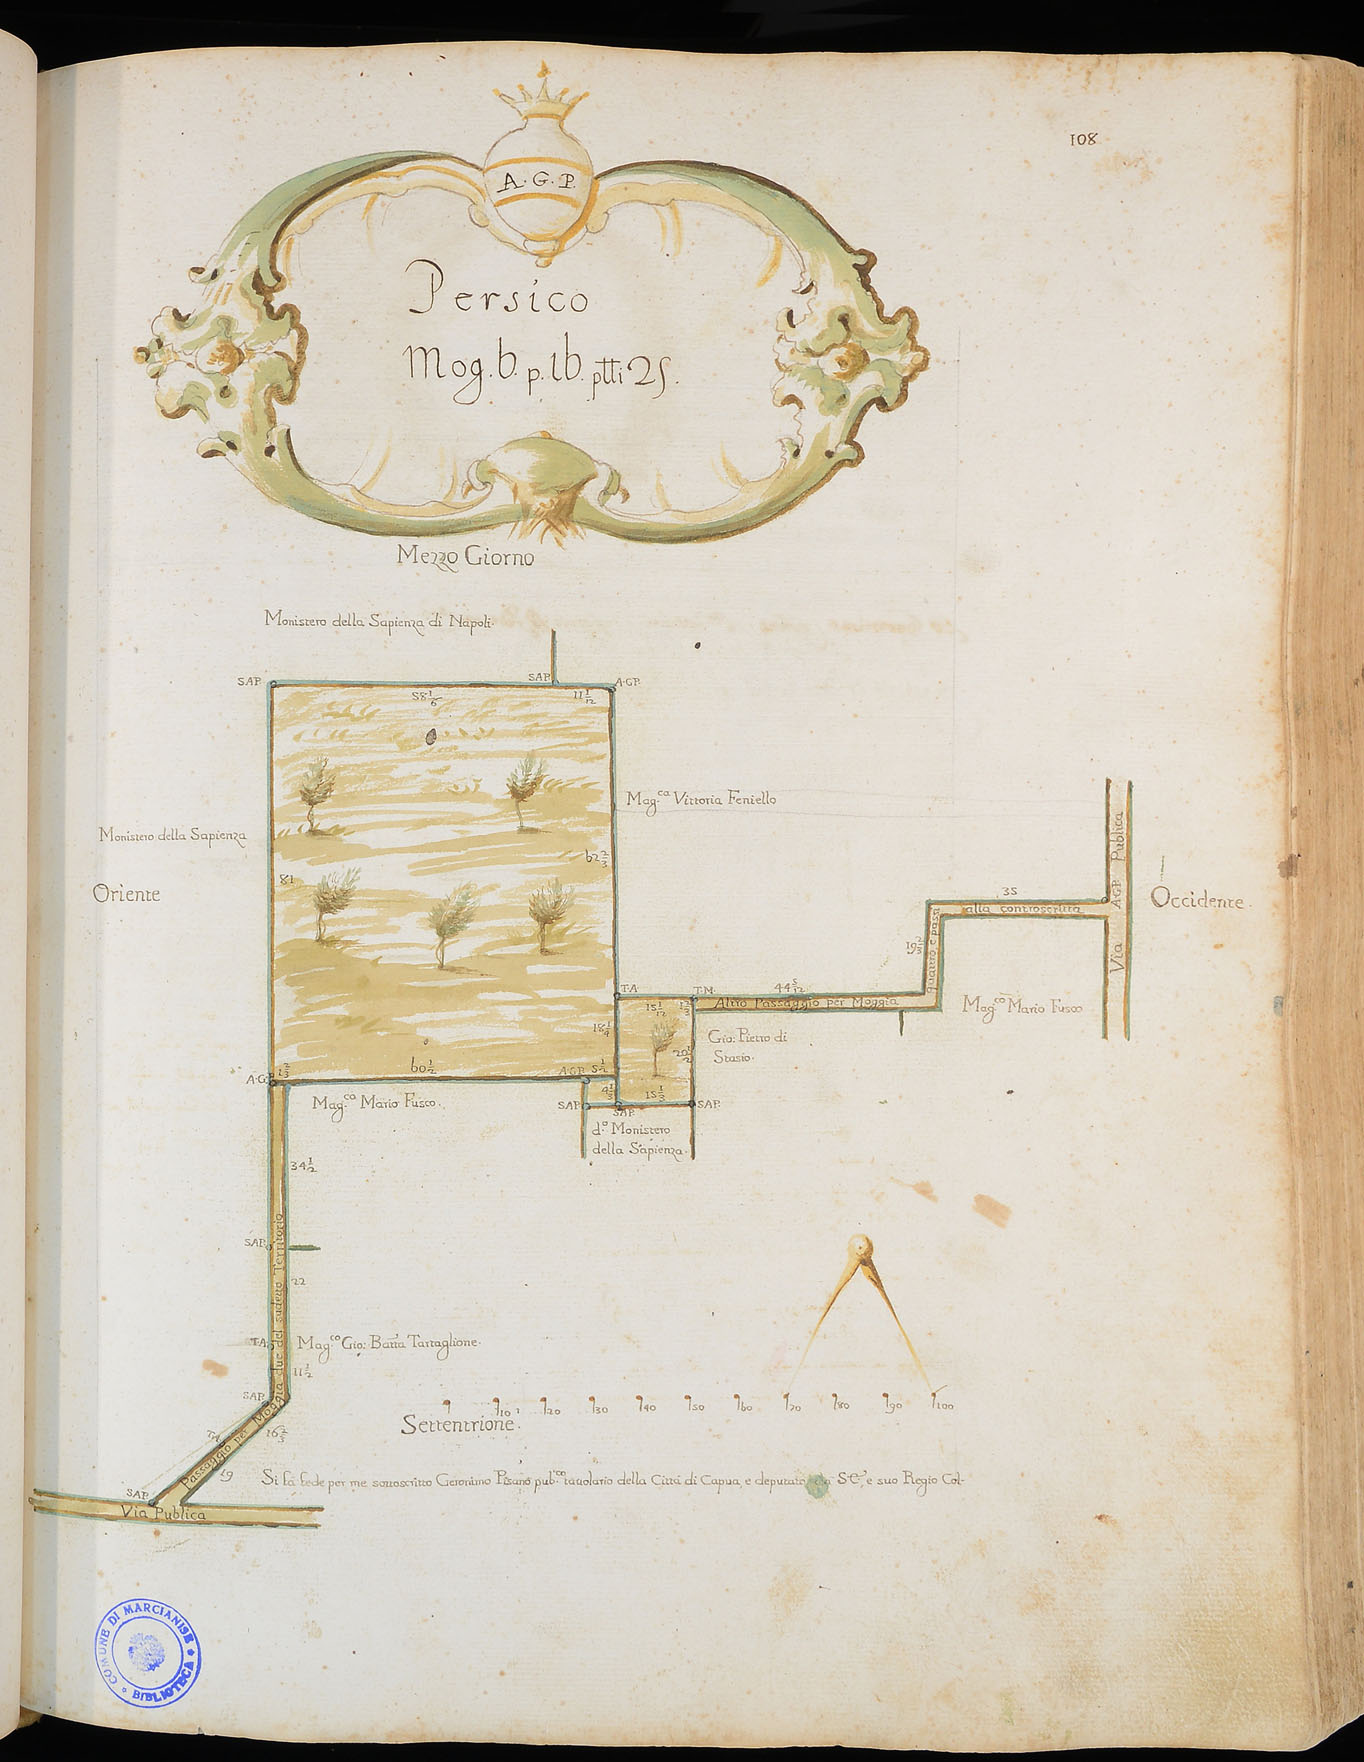 108
A. G. P.
Persico
Mog. 6. p. 16. ptti 25.
Mezzo Giorno
Monistero della Sapienza di Napoli.
SAP.
SAP.
A.GP.
58 1/6
11 1/12
Mag.ca Vittoria Feniello
Monistero della Sapienza
62 2/3
81
Oriente
Via A.GP. Publica
35
alla controscritta
Occidente.
19 2/3
quattro e passi
T.A.
T.M.
44 5/12
Altro Passaggio per Moggia
15 1/12
Mag.co Mario Fusco
18 1/4
20 1/2
Gio: Pietro di
Stasio.
A.G.P.
1 2/3
60 1/2
A.GP.
5 1/2
15 1/3
Mag.co Mario Fusco.
SAP.
SAP.
SAP.
d.o Monistero
della Sapienza.
34 1/2
SAP.
22
T.A.
Mag.co Gio: Batta Tartaglione.
11 1/2
SAP.
Passaggio per Moggia due del sudetto Territorio
T.A.
16 2/3
19
1 10 20 30 40 50 60 70 80 90 100
Settentrione.
Si fà fede per me sottoscritto Geronimo Pisano pub.co tavolario della Città di Capua, e deputato S.C., e suo Regio Col-
SAP.
Via Publica
COMUNE DI MARCIANISE
BIBLIOTECA